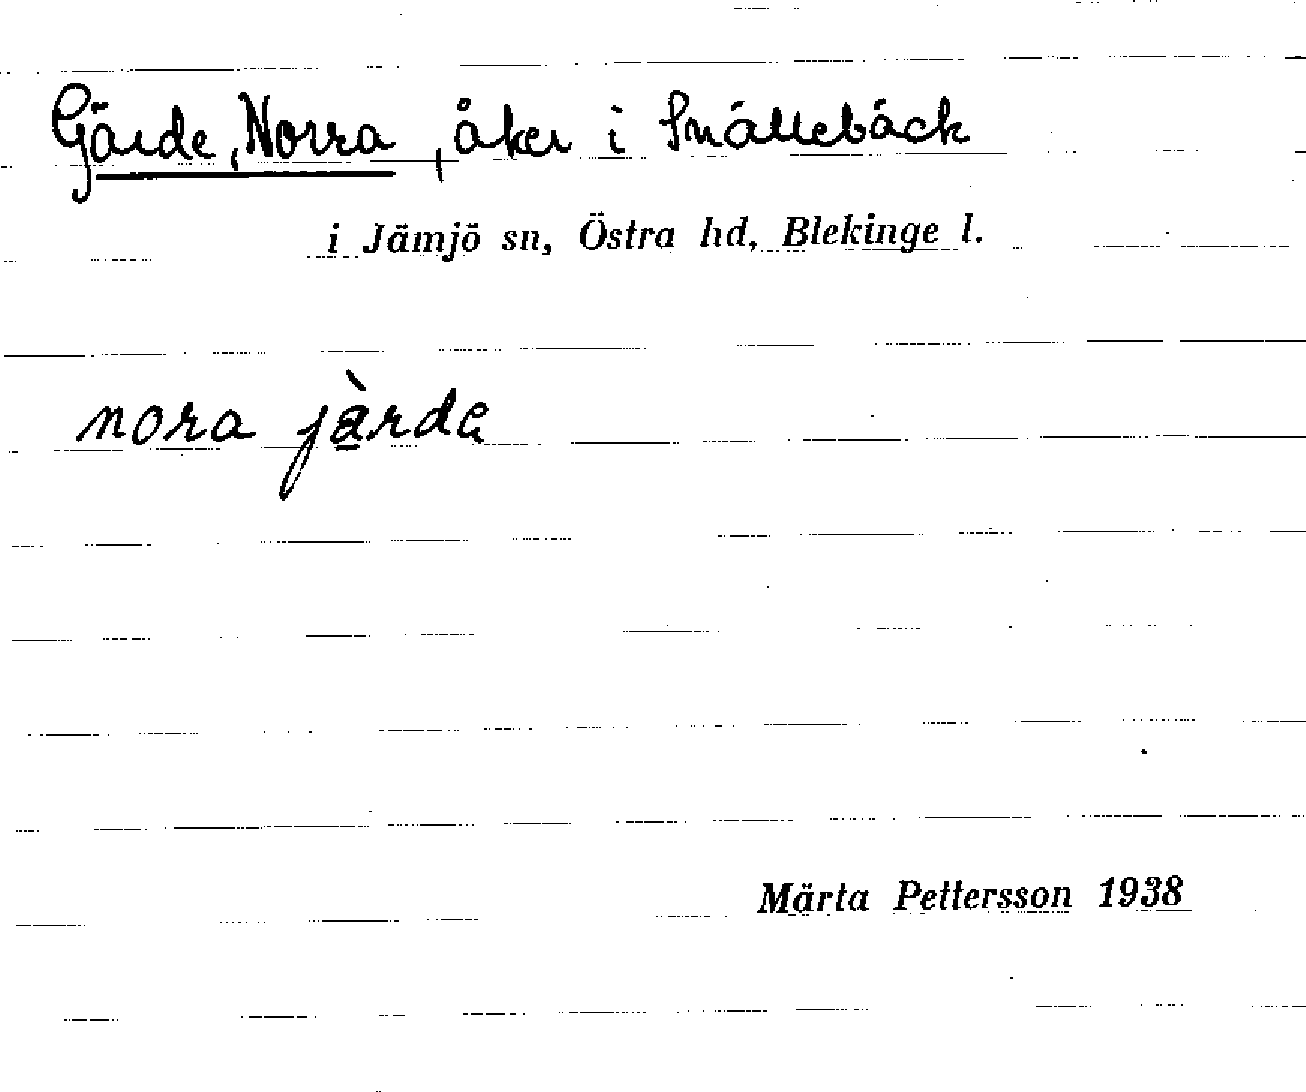 Gärde, Norra, åker i Snällebäck
i Jämjö sn, Östra hd, Blekinge l.
nora jàrde
Märta Pettersson 1938